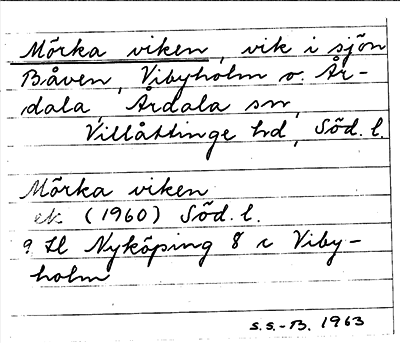 Mörka viken, vik i sjön
Båven, Vibyholm o. År-
dala, Årdala sn,
Villåttinge hd, Söd. l.
Mörka viken
ek (1960) Söd. l.
9 H Nyköping 8 c Viby-
holm
S.S.-B. 1963